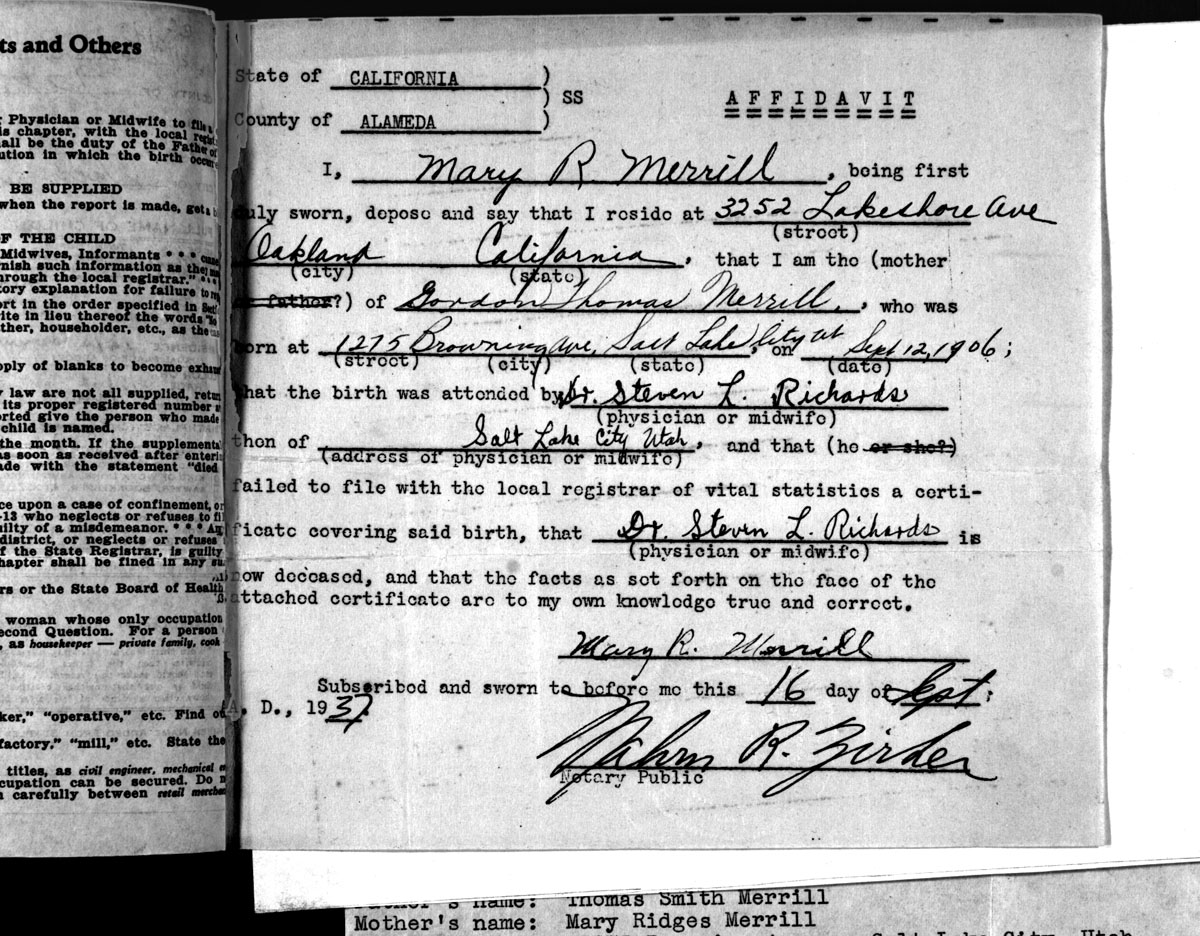 ts and Others
Physician or Midwife to file
is chapter, with the local
all be the duty of the Father
ution in which the birth
BE SUPPLIED
when the report is made, get
F THE CHILD
Midwives, Informants * * *
nish such information as they
hrough the local registrar." * * *
tory explanation for failure to
ort in the order specified in
ite in lieu thereof the words
ther, householder, etc., as the
pply of blanks to become
y law are not all supplied,
its proper registered number
orted give the person who made
child is named.
the month. If the supplemental
as soon as received after
ade with the statement "died
ce upon a case of confinement, or
-13 who neglects or refuses to
ilty of a misdemeanor. * * *
district, or neglects or refuses
f the State Registrar, is guilty
hapter shall be fined in any
rs or the State Board of Health
woman whose only occupation
econd Question. For a person
, as housekeeper — private family, cook
ker," "operative," etc. Find
factory," "mill," etc. State the
titles, as civil engineer, mechanical
cupation can be secured. Do
carefully between retail
State of CALIFORNIA )
) SS AFFIDAVIT
County of ALAMEDA )
I, Mary R. Merrill, being first
duly sworn, depose and say that I reside at 3252 Lakeshore Ave
(street)
Oakland California, that I am the (mother
(city) (state)
or father?) of Gordon Thomas Merrill, who was
born at 1275 Browning Ave, Salt Lake City at, on Sept 12, 1906;
(street) (city) (state) (date)
that the birth was attended by Dr. Steven L. Richards
(physician or midwife)
then of Salt Lake City Utah, and that (he or she?)
(address of physician or midwife)
failed to file with the local registrar of vital statistics a certi-
ficate covering said birth, that Dr. Steven L. Richards is
(physician or midwife)
now deceased, and that the facts as set forth on the face of the
attached certificate are to my own knowledge true and correct.
Mary R. Merrill
Subscribed and sworn to before me this 16 day of Sept;
A. D., 1937.
R.
Notary Public
Father's name: Thomas Smith Merrill
Mother's name: Mary Ridges Merrill
Salt Lake City, Utah